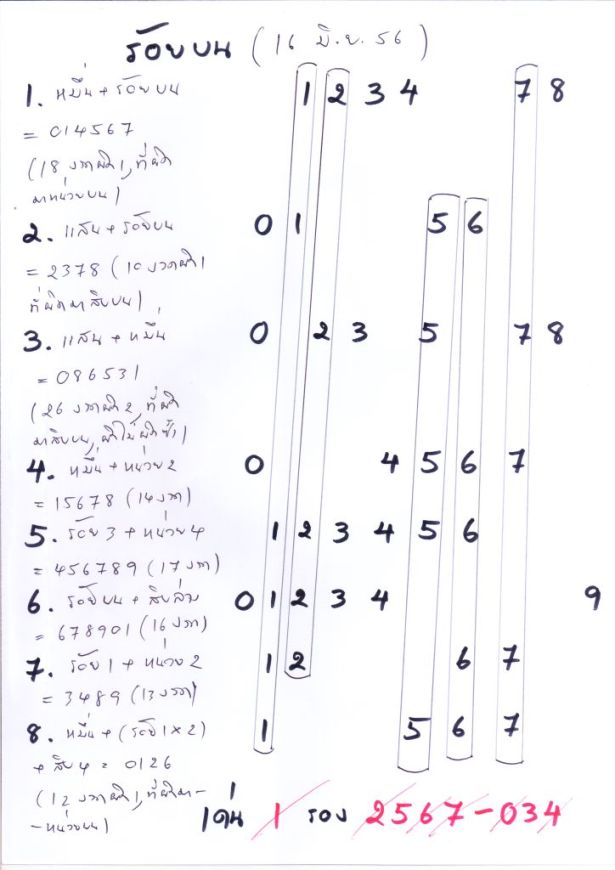 ร้อยบน (16 มิ.ย. 56)
1. หมื่น + ร้อยบน 1 2 3 4 7 8
= 014567
(18 งวดผิด 1, ที่ผิด
มาหน่วยบน)
2. แสน + ร้อยบน 0 1 5 6
= 2378 (10 งวดผิด 1
ที่ผิดมาสิบบน)
3. แสน + หมื่น 0 2 3 5 7 8
= 086531
(26 งวดผิด 2, ที่ผิด
มาสิบบน, ผิดไม่ผิดซ้ำ)
4. หมื่น + หน่วย 2 0 4 5 6 7
= 15678 (14 งวด)
5. ร้อย 3 + หน่วย 4 1 2 3 4 5 6
= 456789 (17 งวด)
6. ร้อยบน + สิบล่าง 0 1 2 3 4 9
= 678901 (16 งวด)
7. ร้อย 1 + หน่วย 2 1 2 6 7
= 3489 (13 งวด)
8. หมื่น + (ร้อย 1 x 2) 1 5 6 7
+ สิบ 4 = 0126
(12 งวดผิด 1, ที่ผิดมา-
-หน่วยบน)
เด่น 1 รอง 2567-034